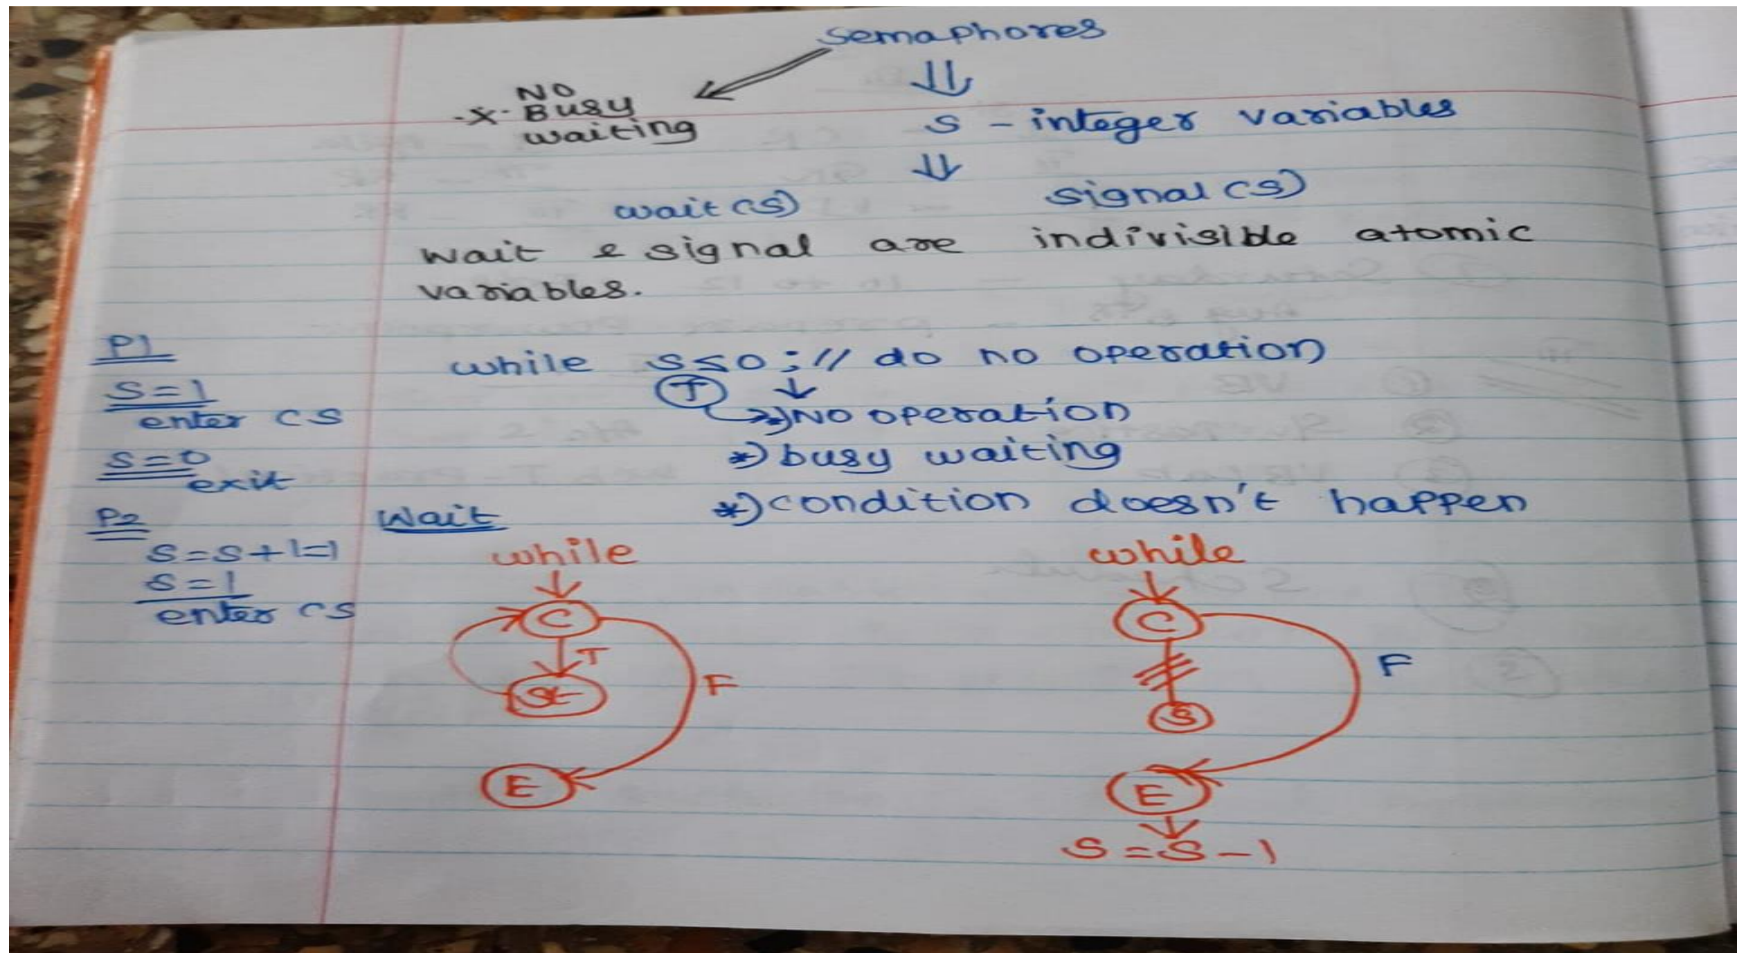 Semaphores
NO
-x- Busy
waiting
S - integer variables
wait(s) signal(s)
wait & signal are indivisible atomic
variables.
P1
S=1
enter CS
S=0
exit
P2
S=S+1=1
S=1
enter CS
while S≤0;// do no operation
T
*)NO operation
*) busy waiting
*) condition doesn't happen
Wait
while
C
T
St
F
E
while
C
F
S
E
S=S-1